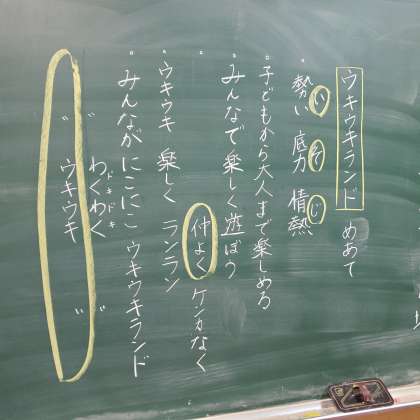 ウキウキランド めあて
い そ じ
勢い 底力 情熱
子どもから大人まで楽しめる
みんなで楽しく遊ぼう
仲よく ケンカなく
ウキウキ 楽しく ランラン
みんながにこにこ ウキウキランド
ドキドキ
わくわく
ウキウキ